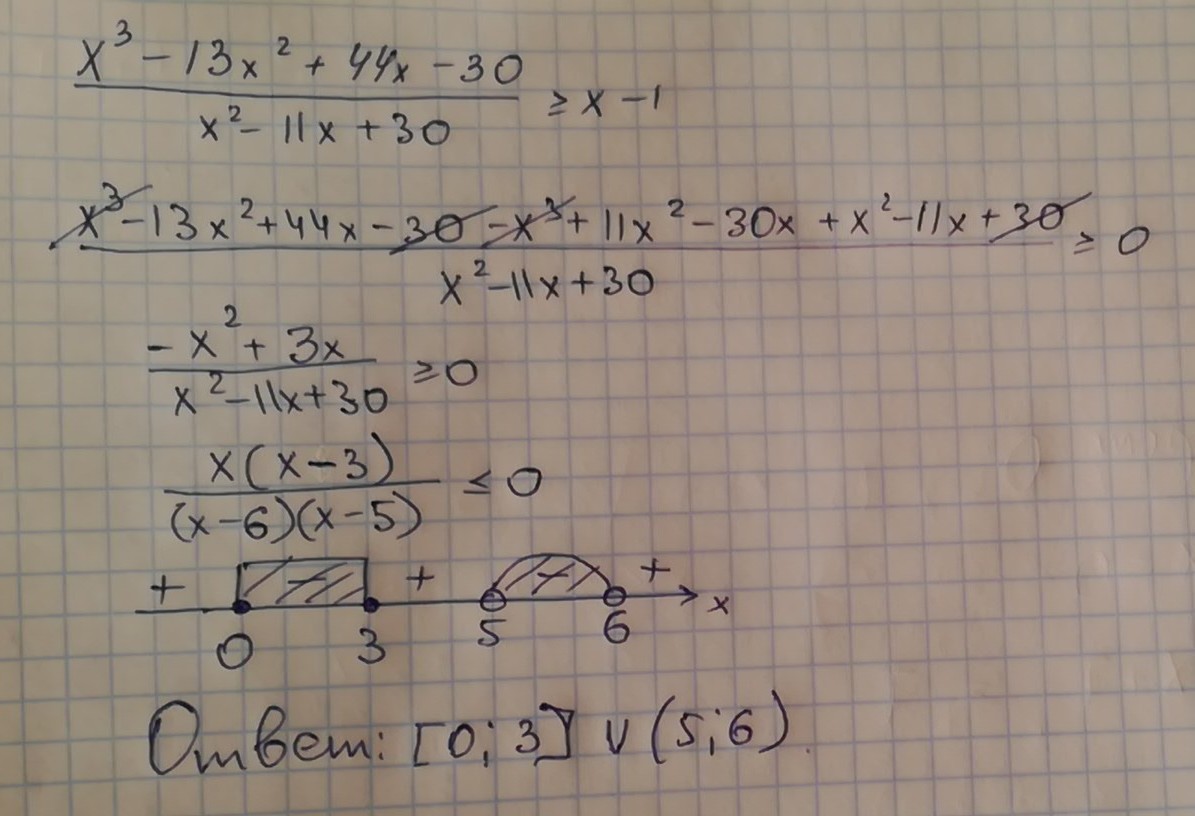 x³ − 13x² + 44x − 30
x² − 11x + 30
≥ x − 1
x³ − 13x² + 44x − 30 − x³ + 11x² − 30x + x² − 11x + 30
x² − 11x + 30
≥ 0
− x² + 3x
x² − 11x + 30
≥ 0
x(x − 3)
(x − 6)(x − 5)
≤ 0
+ − + − + x
0 3 5 6
Ответ: [0; 3] ∪ (5; 6).